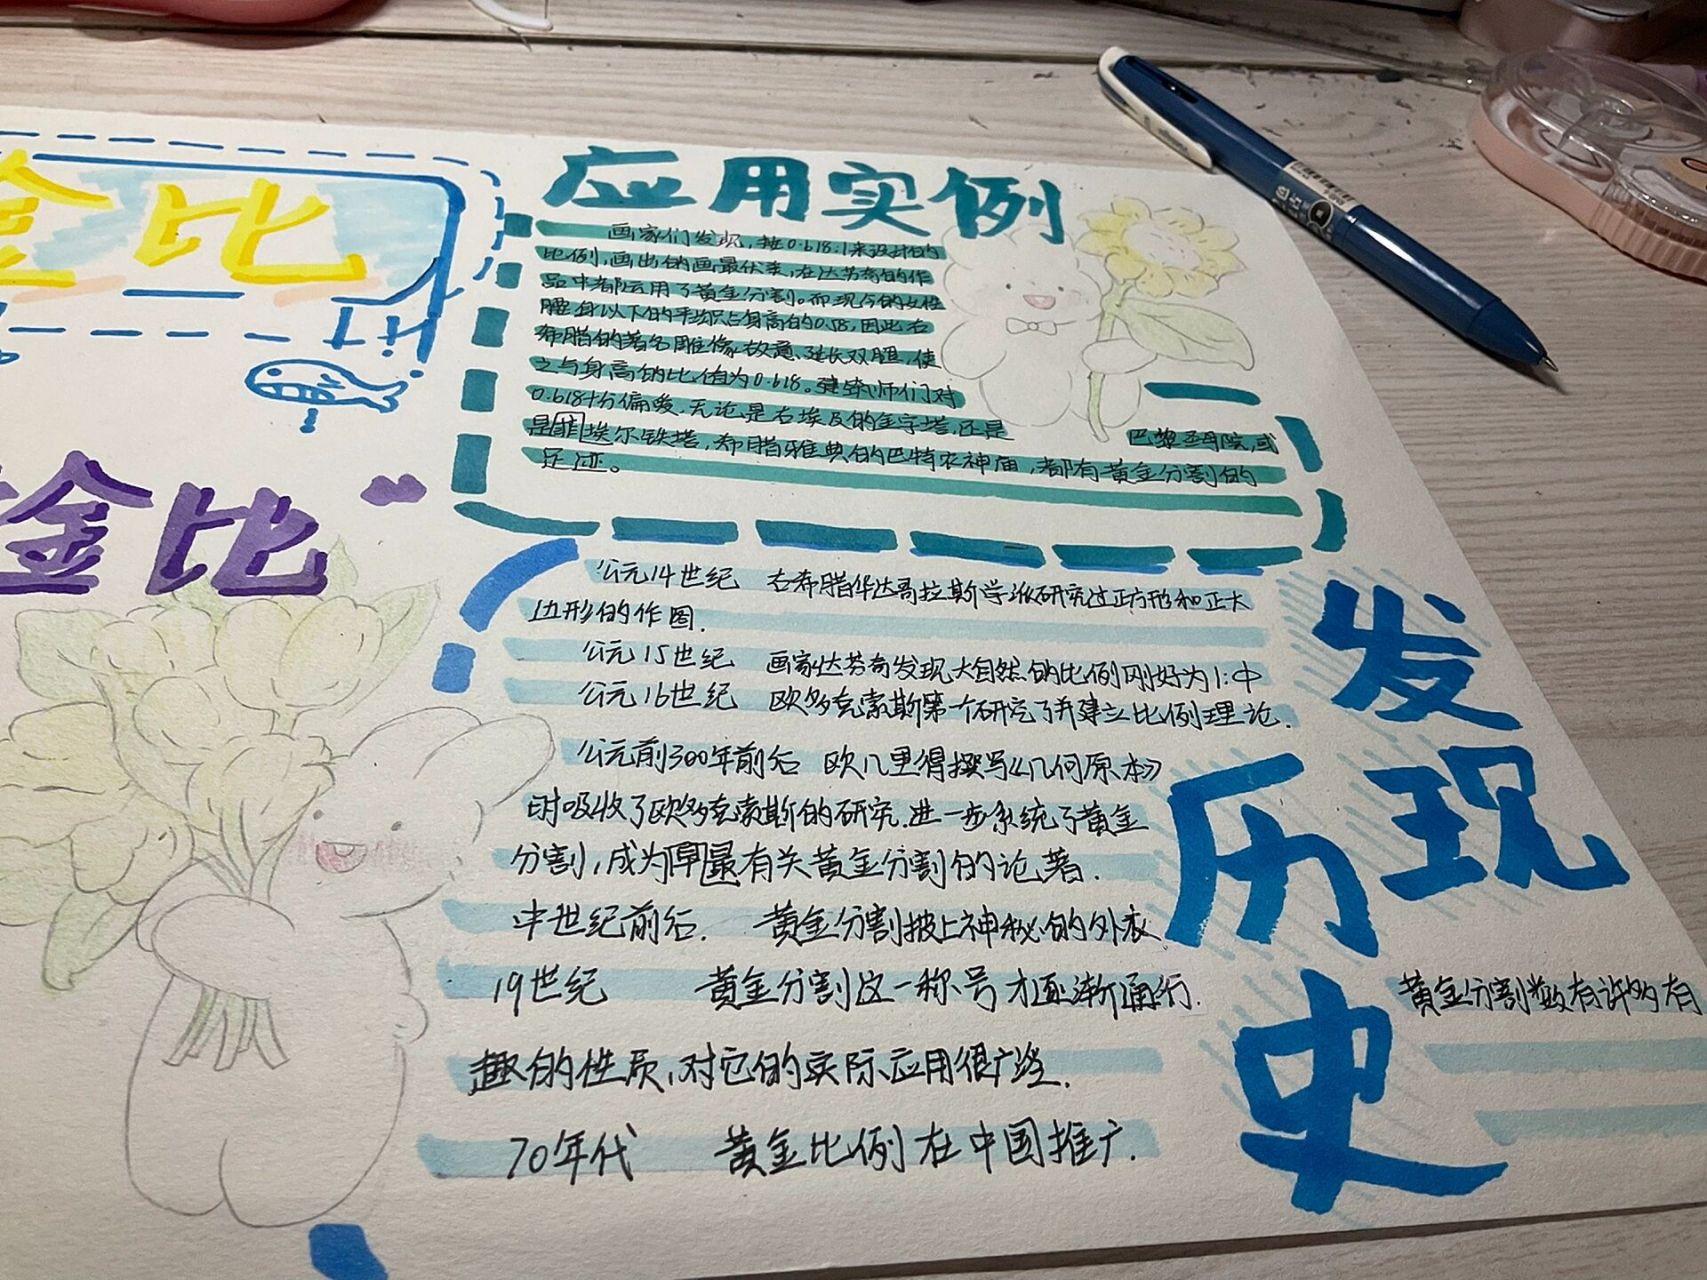 金比
应用实例
画家们发现,按0.618:1来设计的
比例,画出的画最优美,在达芬奇的作
品中都运用了黄金分割。而现今的女性
腰身以下的平均只占身高的0.58,因此古
希腊的著名雕像故意延长双腿,使
之与身高的比值为0.618。建筑师们对
0.618十分偏爱,无论是古埃及的金字塔,还是
巴黎圣母院,或
是菲埃尔铁塔,希腊雅典的巴特农神庙,都有黄金分割的
足迹。
金比”
发现
历史
公元14世纪 古希腊毕达哥拉斯学派研究过正方形和正大
边形的作图.
公元15世纪 画家达芬奇发现大自然的比例刚好为1:中
公元16世纪 欧多克索斯第一个研究了并建立比例理论.
公元前300年前后 欧几里得撰写《几何原本》
时吸收了欧多克索斯的研究.进一步系统了黄金
分割,成为早最有关黄金分割的论著.
中世纪前后. 黄金分割披上神秘的外衣.
19世纪 黄金分割这一称号才逐渐通行.
黄金分割数有许多有
趣的性质,对它的实际应用很广泛.
70年代 黄金比例在中国推广.